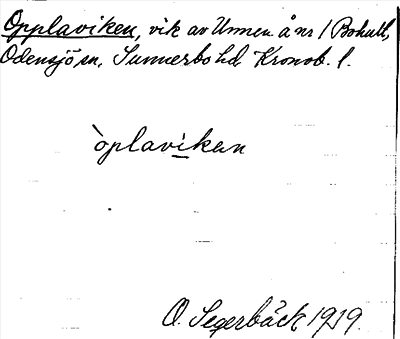 Opplaviken, vik av Unnen å nr 1 Bohult,
Odensjö sn, Sunnerbo hd, Kronob. l.
òplaviken
O. Segerbäck 1919.